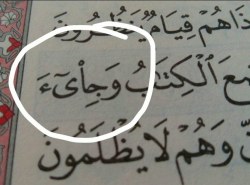 ذَاهُمْ قِيَامٌ يَنظُرُونَ
عَ ٱلْكِتَٰبُ وَجِا۟ىٓءَ
وَهُمْ لَا يُظْلَمُونَ